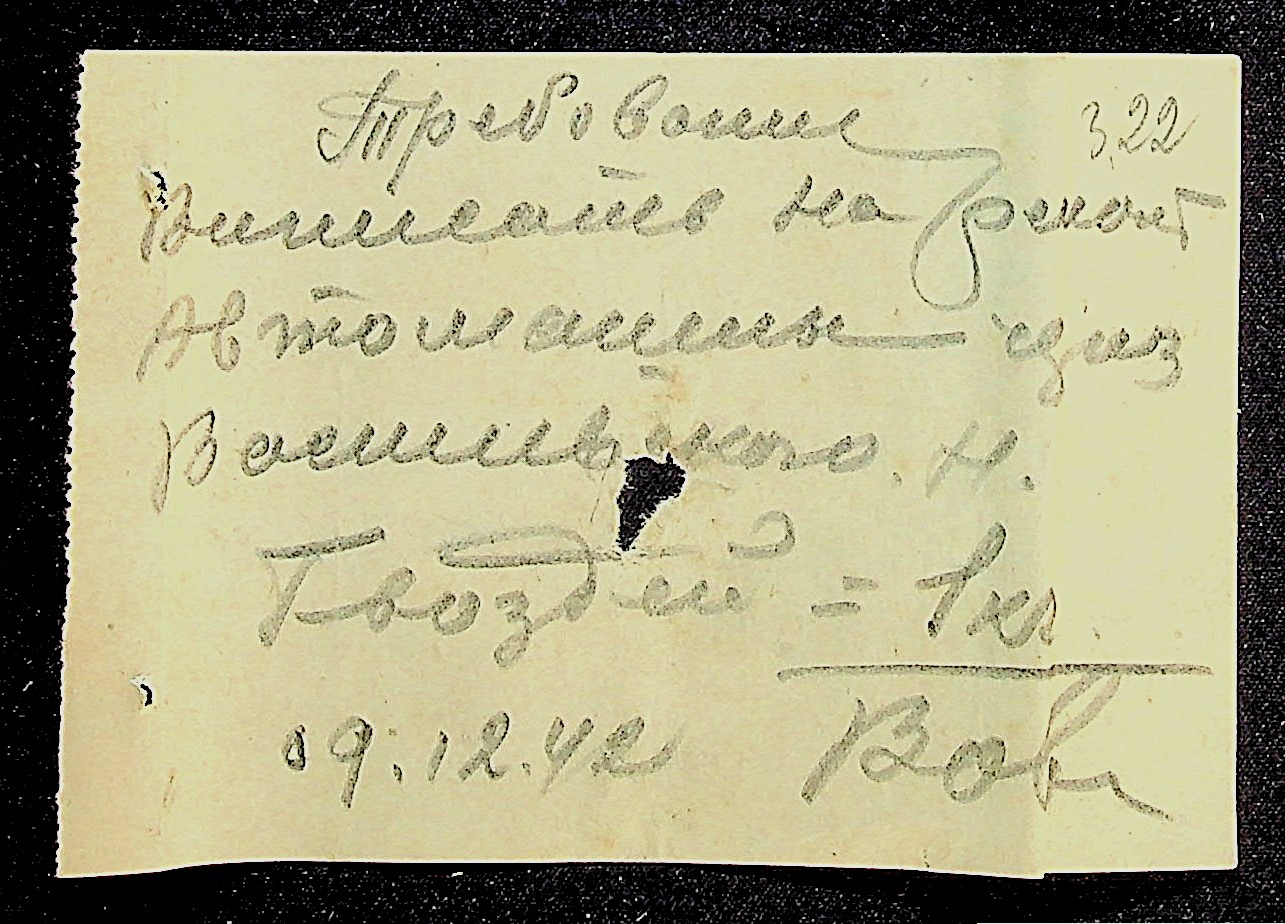 Требование 322
Выписать на ремонт
Автомашины
Василь
Гвоздей = 1 кг
09.12.42